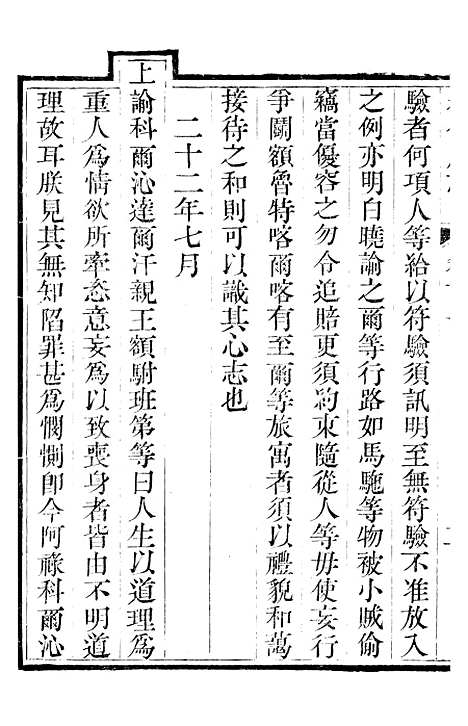 驗者何項人等給以符驗須訊明至無符驗不准放入
之例亦明白曉諭之爾等行路如馬駞等物被小賊偷
竊當優容之勿令追賠更須約束隨從人等毋使妄行
爭鬭額魯特喀爾喀有至爾等旅寓者須以禮貌和藹
接待之和則可以識其心志也
二十二年七月
上諭科爾沁達爾汗親王額駙班第等曰人生以道理爲
重人爲情欲所牽恣意妄爲以致喪身者皆由不明道
理故耳朕見其無知陷罪甚爲憫惻卽今阿祿科爾沁